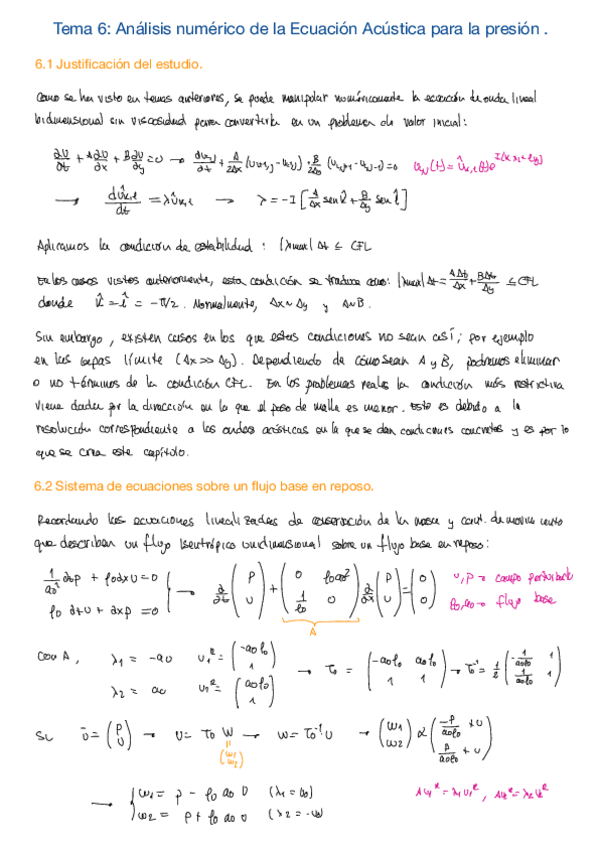 Tema 6: Análisis numérico de la Ecuación Acústica para la presión .
6.1 Justificación del estudio.
Como se ha visto en temas anteriores, se puede manipular numéricamente la ecuación de onda lineal
bidimensional sin viscosidad para convertirla en un problema de valor inicial:
∂U/∂t + A∂U/∂x + B∂U/∂y = 0 → du_{k,j}/dt + A/2Δx (u_{k+1,j} - u_{k-1,j}) + B/2Δy (u_{k,j+1} - u_{k,j-1}) = 0
→ dû_{k,l}/dt = λ û_{k,l} → λ = -I [A/Δx sen k̂ + B/Δy sen l̂]
Aplicamos la condición de estabilidad : |λmax| Δt ≤ CFL
En los casos vistos anteriormente, esta condición se traduce como: |λmax| Δt = AΔt/Δx + BΔt/Δy ≤ CFL
donde k̂ = l̂ = -π/2. Normalmente, Δx ~ Δy y A ~ B.
Sin embargo, existen casos en los que estas condiciones no sean así; por ejemplo
en las capas límite (Δx >> Δy). Dependiendo de cómo sean A y B, podremos eliminar
o no términos de la condición CFL. En los problemas reales la condición más restrictiva
viene dada por la dirección en la que el paso de malla es menor. Esto es debido a la
resolución correspondiente a las ondas acústicas en la que se dan condiciones concretas y es por lo
que se crea este capítulo.
6.2 Sistema de ecuaciones sobre un flujo base en reposo.
Recordando las ecuaciones linealizadas de conservación de la masa y cant. de movimiento
que describen un flujo isentrópico unidimensional sobre un flujo base en reposo:
1/a0² ∂tp + ρ0 ∂x u = 0
ρ0 ∂t u + ∂x p = 0
→ ∂/∂t (p u) + (0 ρ0a0² 1/ρ0 0) ∂/∂x (p u) = (0 0)
u, p → campo perturbado
ρ0, a0 → flujo base
A
Con A, λ1 = -a0 v1^R = (-a0ρ0 1) → T0 = (-a0ρ0 a0ρ0 1 1) → T0^-1 = 1/2 (-1/a0ρ0 1 1/a0ρ0 1)
λ2 = a0 v2^R = (a0ρ0 1)
Si ū = (p u) → U = T0 W → W = T0^-1 U → (w1 w2) ∝ (-p/a0ρ0 + u p/a0ρ0 + u)
(w1 w2)
→ w1 = p - ρ0 a0 u (λ1 = a0)
w2 = p + ρ0 a0 u (λ2 = -a0)